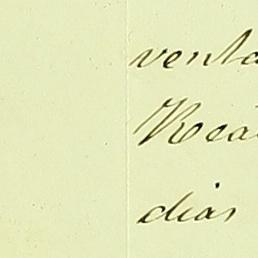 venta
Rea
dias